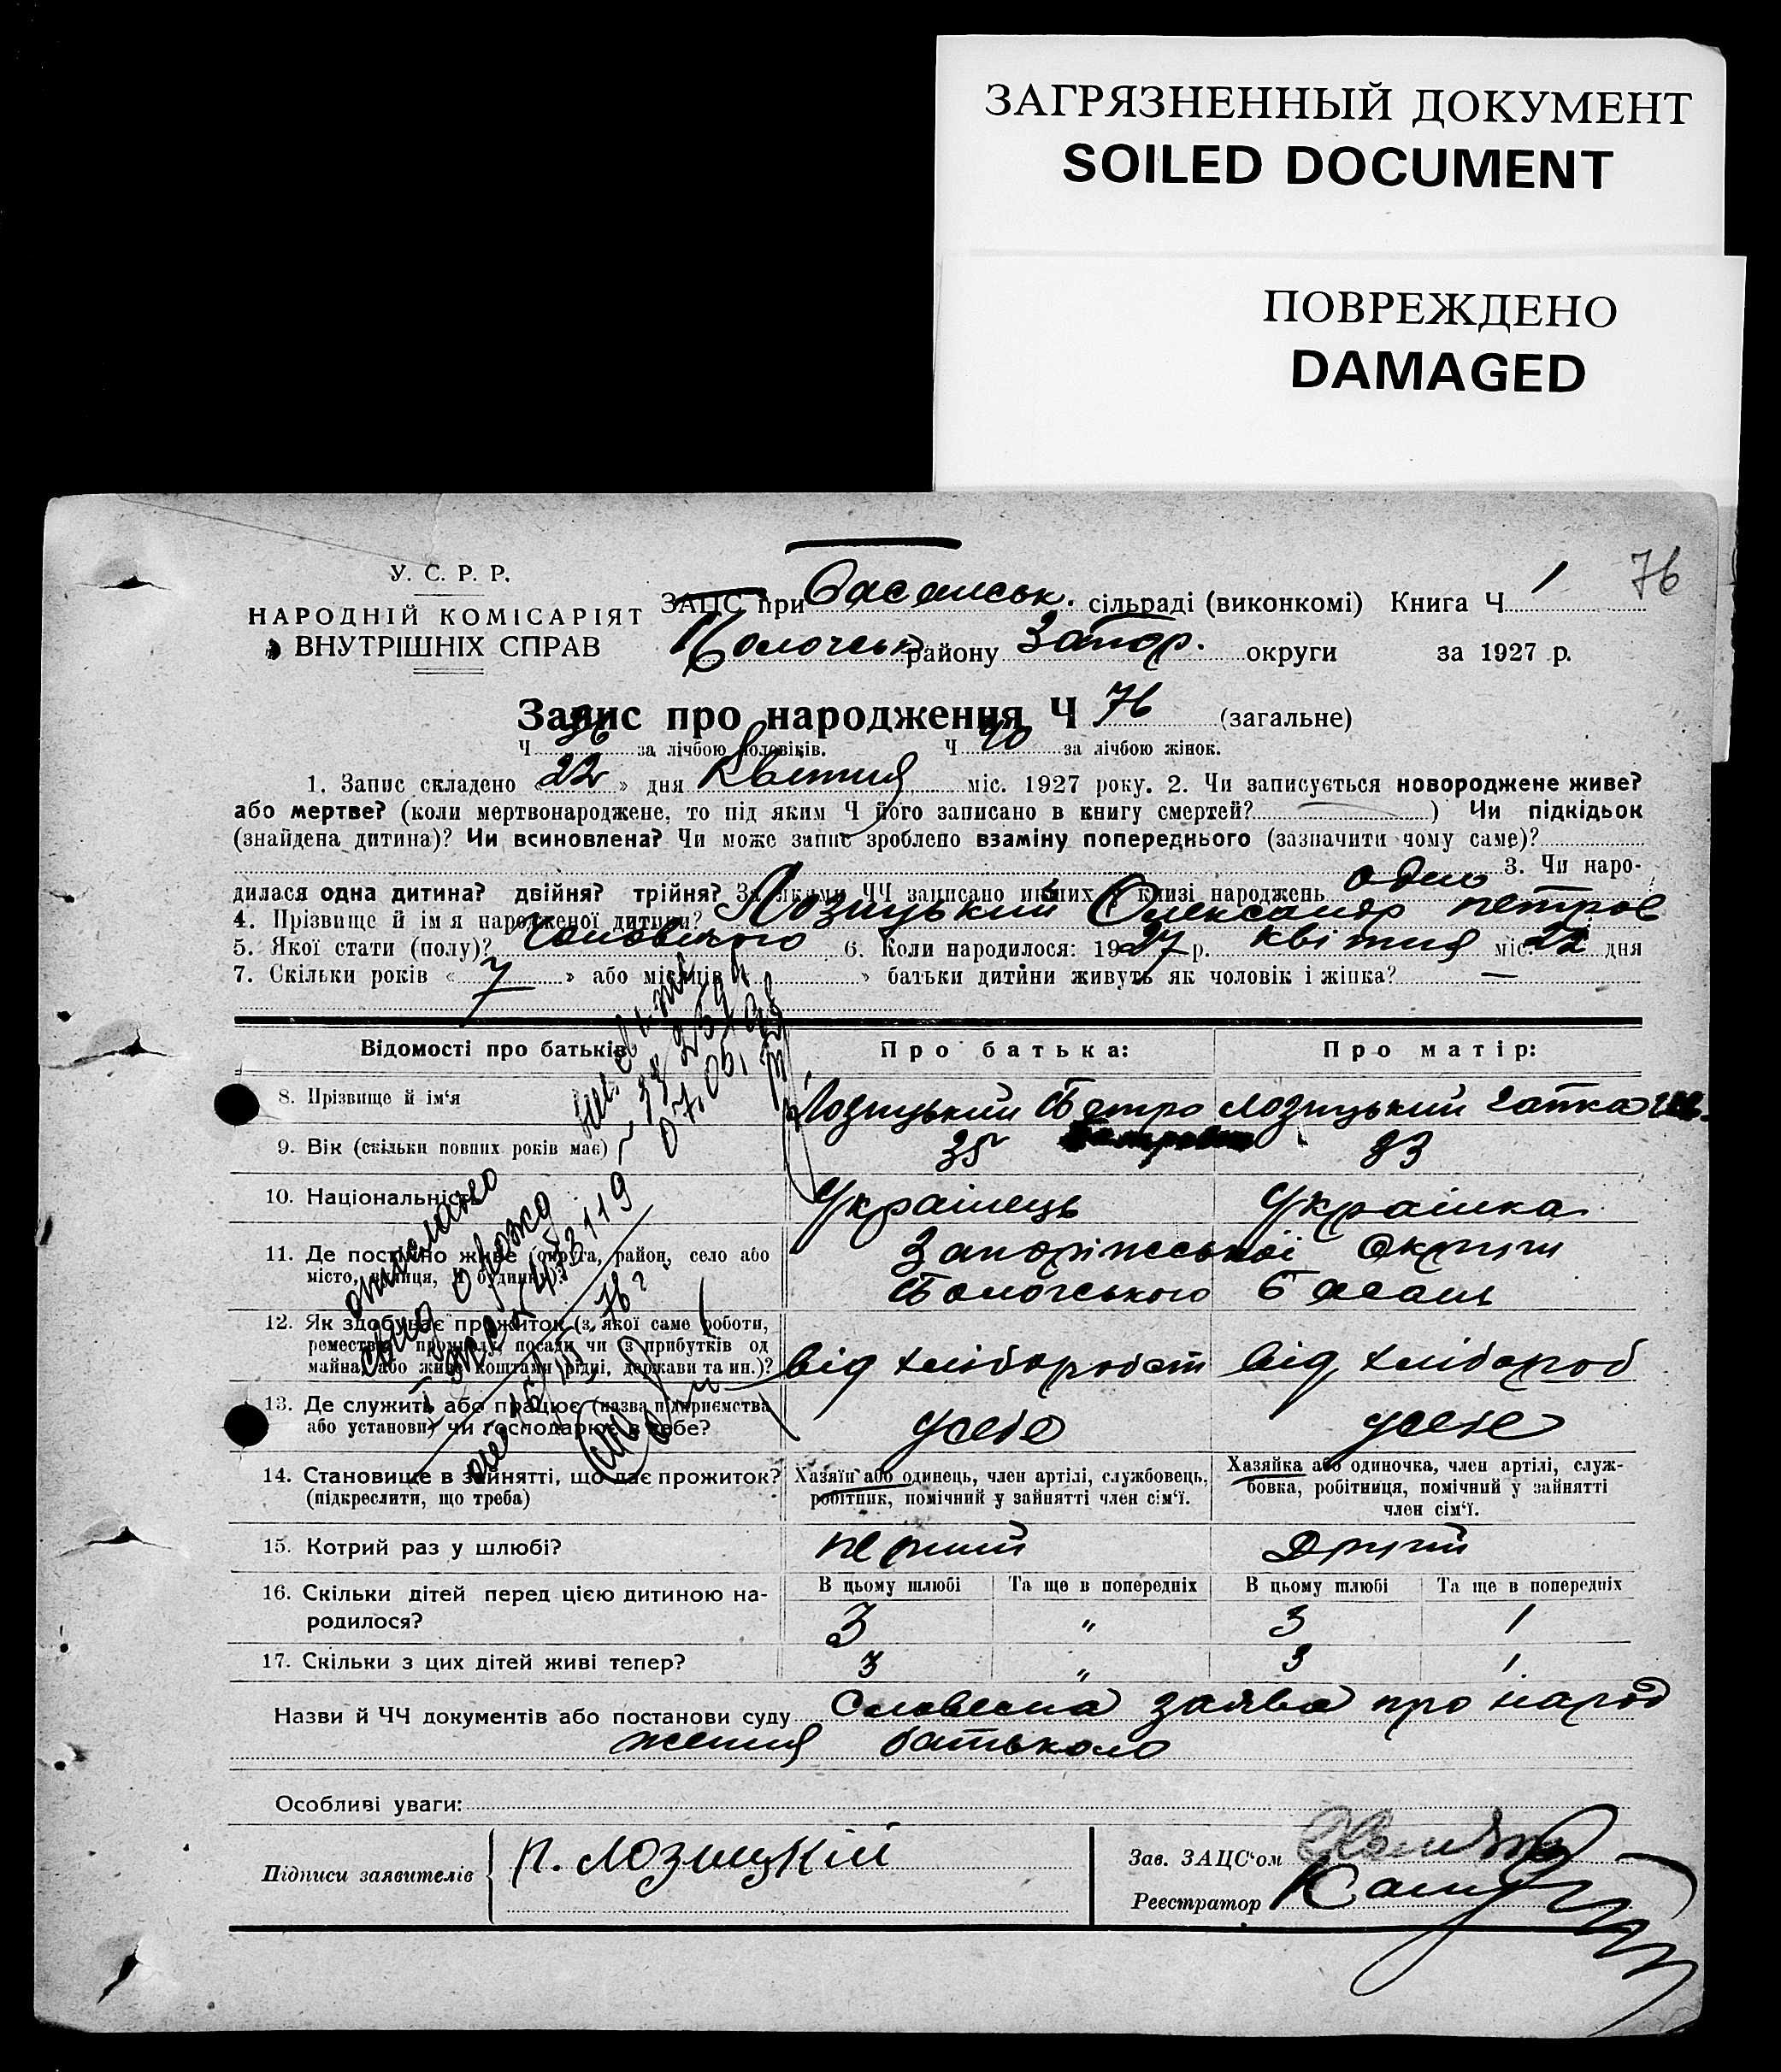 ЗАГРЯЗНЕННЫЙ ДОКУМЕНТ
SOILED DOCUMENT
ПОВРЕЖДЕНО
DAMAGED
76
У. С. Р. Р.
НАРОДНІЙ КОМІСАРІЯТ
ВНУТРІШНІХ СПРАВ
ЗАЦС при Басанськ. сільраді (виконкомі) Книга Ч 1
Пологськ району Запор. округи за 1927 р.
Запис про народження Ч 76 (загальне)
Ч 36 за лічбою чоловіків. Ч 40 за лічбою жінок.
1. Запис складено «22» дня Квітня міс. 1927 року. 2. Чи записується новороджене живе?
або мертве? (коли мертвонароджене, то під яким Ч його записано в книгу смертей? ) Чи підкідьок
(знайдена дитина)? Чи всиновлена? Чи може запис зроблено взаміну попереднього (зазначити чому саме)?
3. Чи наро-
дилася одна дитина? двійня? трійня? За якими ЧЧ записано инших у книзі народжень одно
4. Прізвище й ім я народженої дитини? Лозицький Олександр Петров
5. Якої стати (полу)? Чоловічого 6. Коли народилося: 1927 р. квітня міс. 22 дня
7. Скільки років «7» або місяців » батьки дитини живуть як чоловік і жінка? —
Відомості про батьків Про батька: Про матір:
8. Прізвище й ім‘я Лозицький Петро Лозицький
9. Вік (скільки повних років має) 35 33
10. Національність Українець Українка
11. Де постійно живе (округа, район, село або Запоріжської Округи
місто, вулиця, Ч будинку)? Пологського Басань
12. Як здобуває прожиток (з якої саме роботи,
ремества, промислу, посади чи з прибутків од
майна, або живе коштами рідні, держави та ин.)? від хліборобст від хлібороб
13. Де служить або працює (назва підприємства
або установи) чи господарює в себе? усебе усебе
14. Становище в зайнятті, що дає прожиток? Хазяїн або одинець, член артілі, службовець, Хазяйка або одиночка, член артілі, служ-
(підкреслити, що треба) робітник, помічний у зайнятті член сім‘ї. бовка, робітниця, помічний у зайнятті
член сім‘ї.
15. Котрий раз у шлюбі? перший Другий
16. Скільки дітей перед цією дитиною на- В цьому шлюбі Та ще в попередніх В цьому шлюбі Та ще в попередніх
родилося? 3 „ 3 1
17. Скільки з цих дітей живі тепер? 3 „ 3 1
Назви й ЧЧ документів або постанови суду Словесна заява про народ
ження батьком
Особливі уваги:
Підписи заявителів П. Лозицкій
Зав. ЗАЦС‘ом
Реєстратор